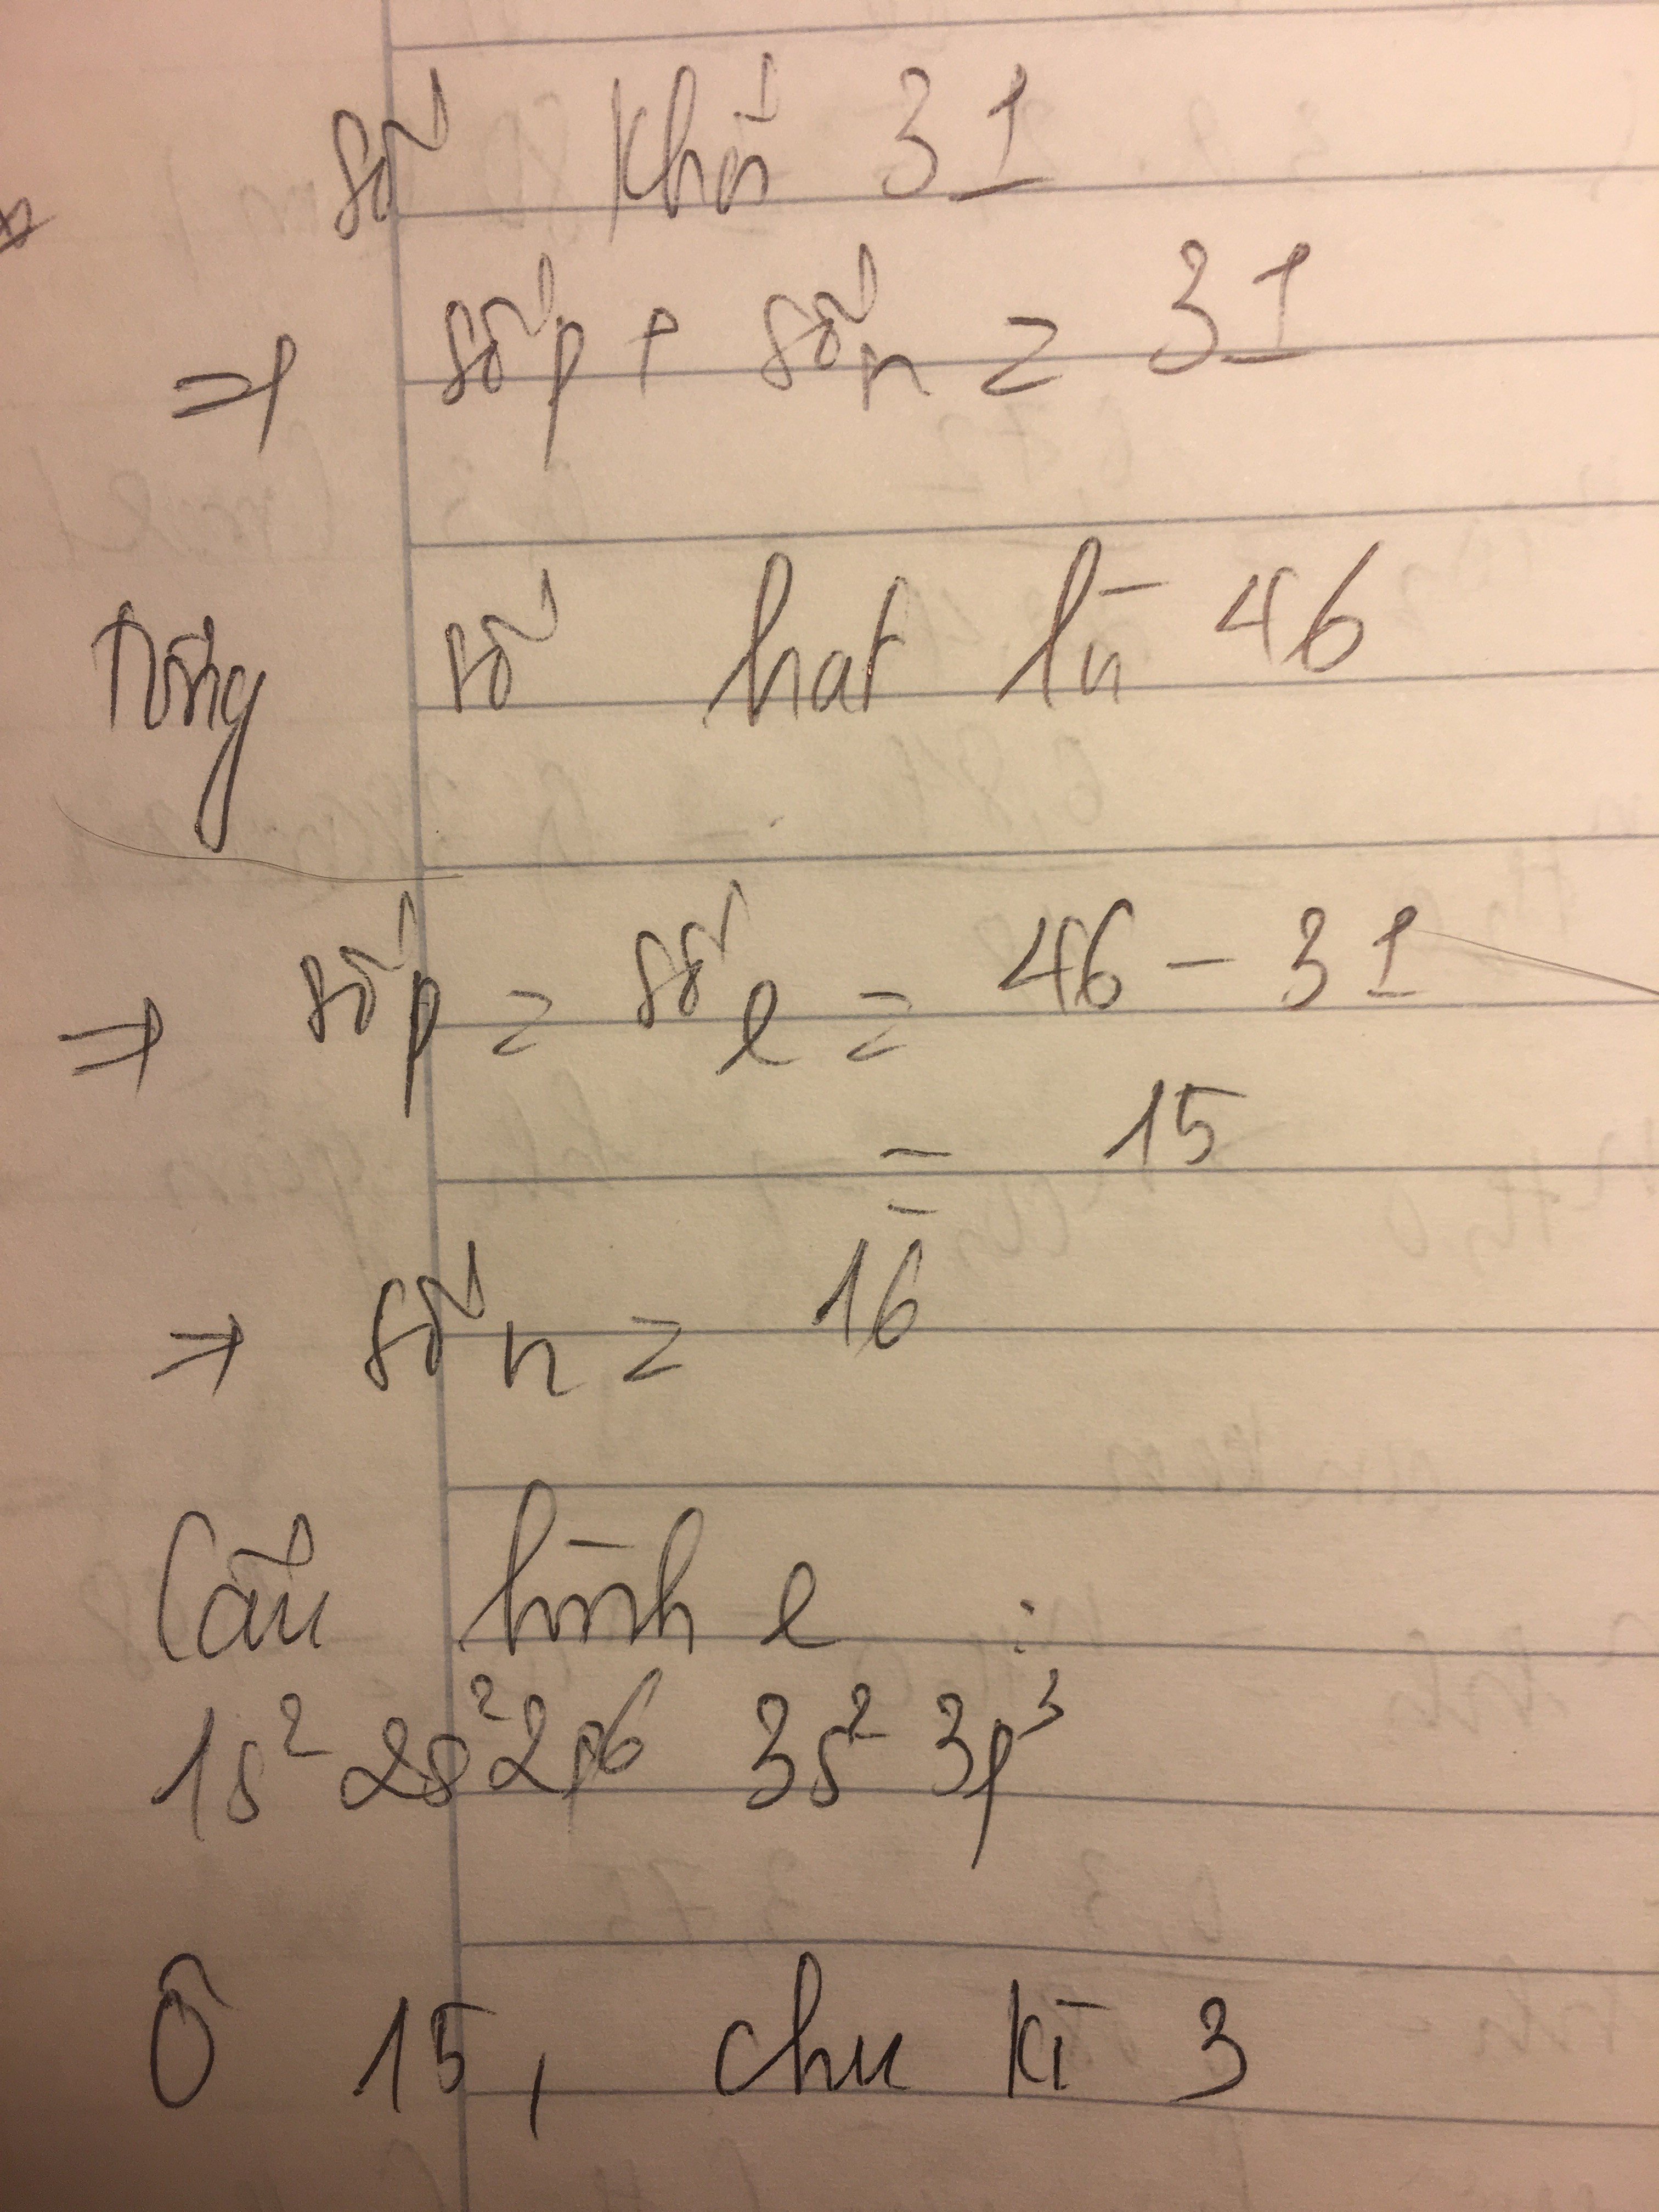 số khối 31
⇒ số p + số n = 31
Tổng số hạt là 46
⇒ số p = số e = 46 - 31
= 15
⇒ số n = 16
Cấu hình e :
1s² 2s² 2p⁶ 3s² 3p³
Ô 15, chu kì 3